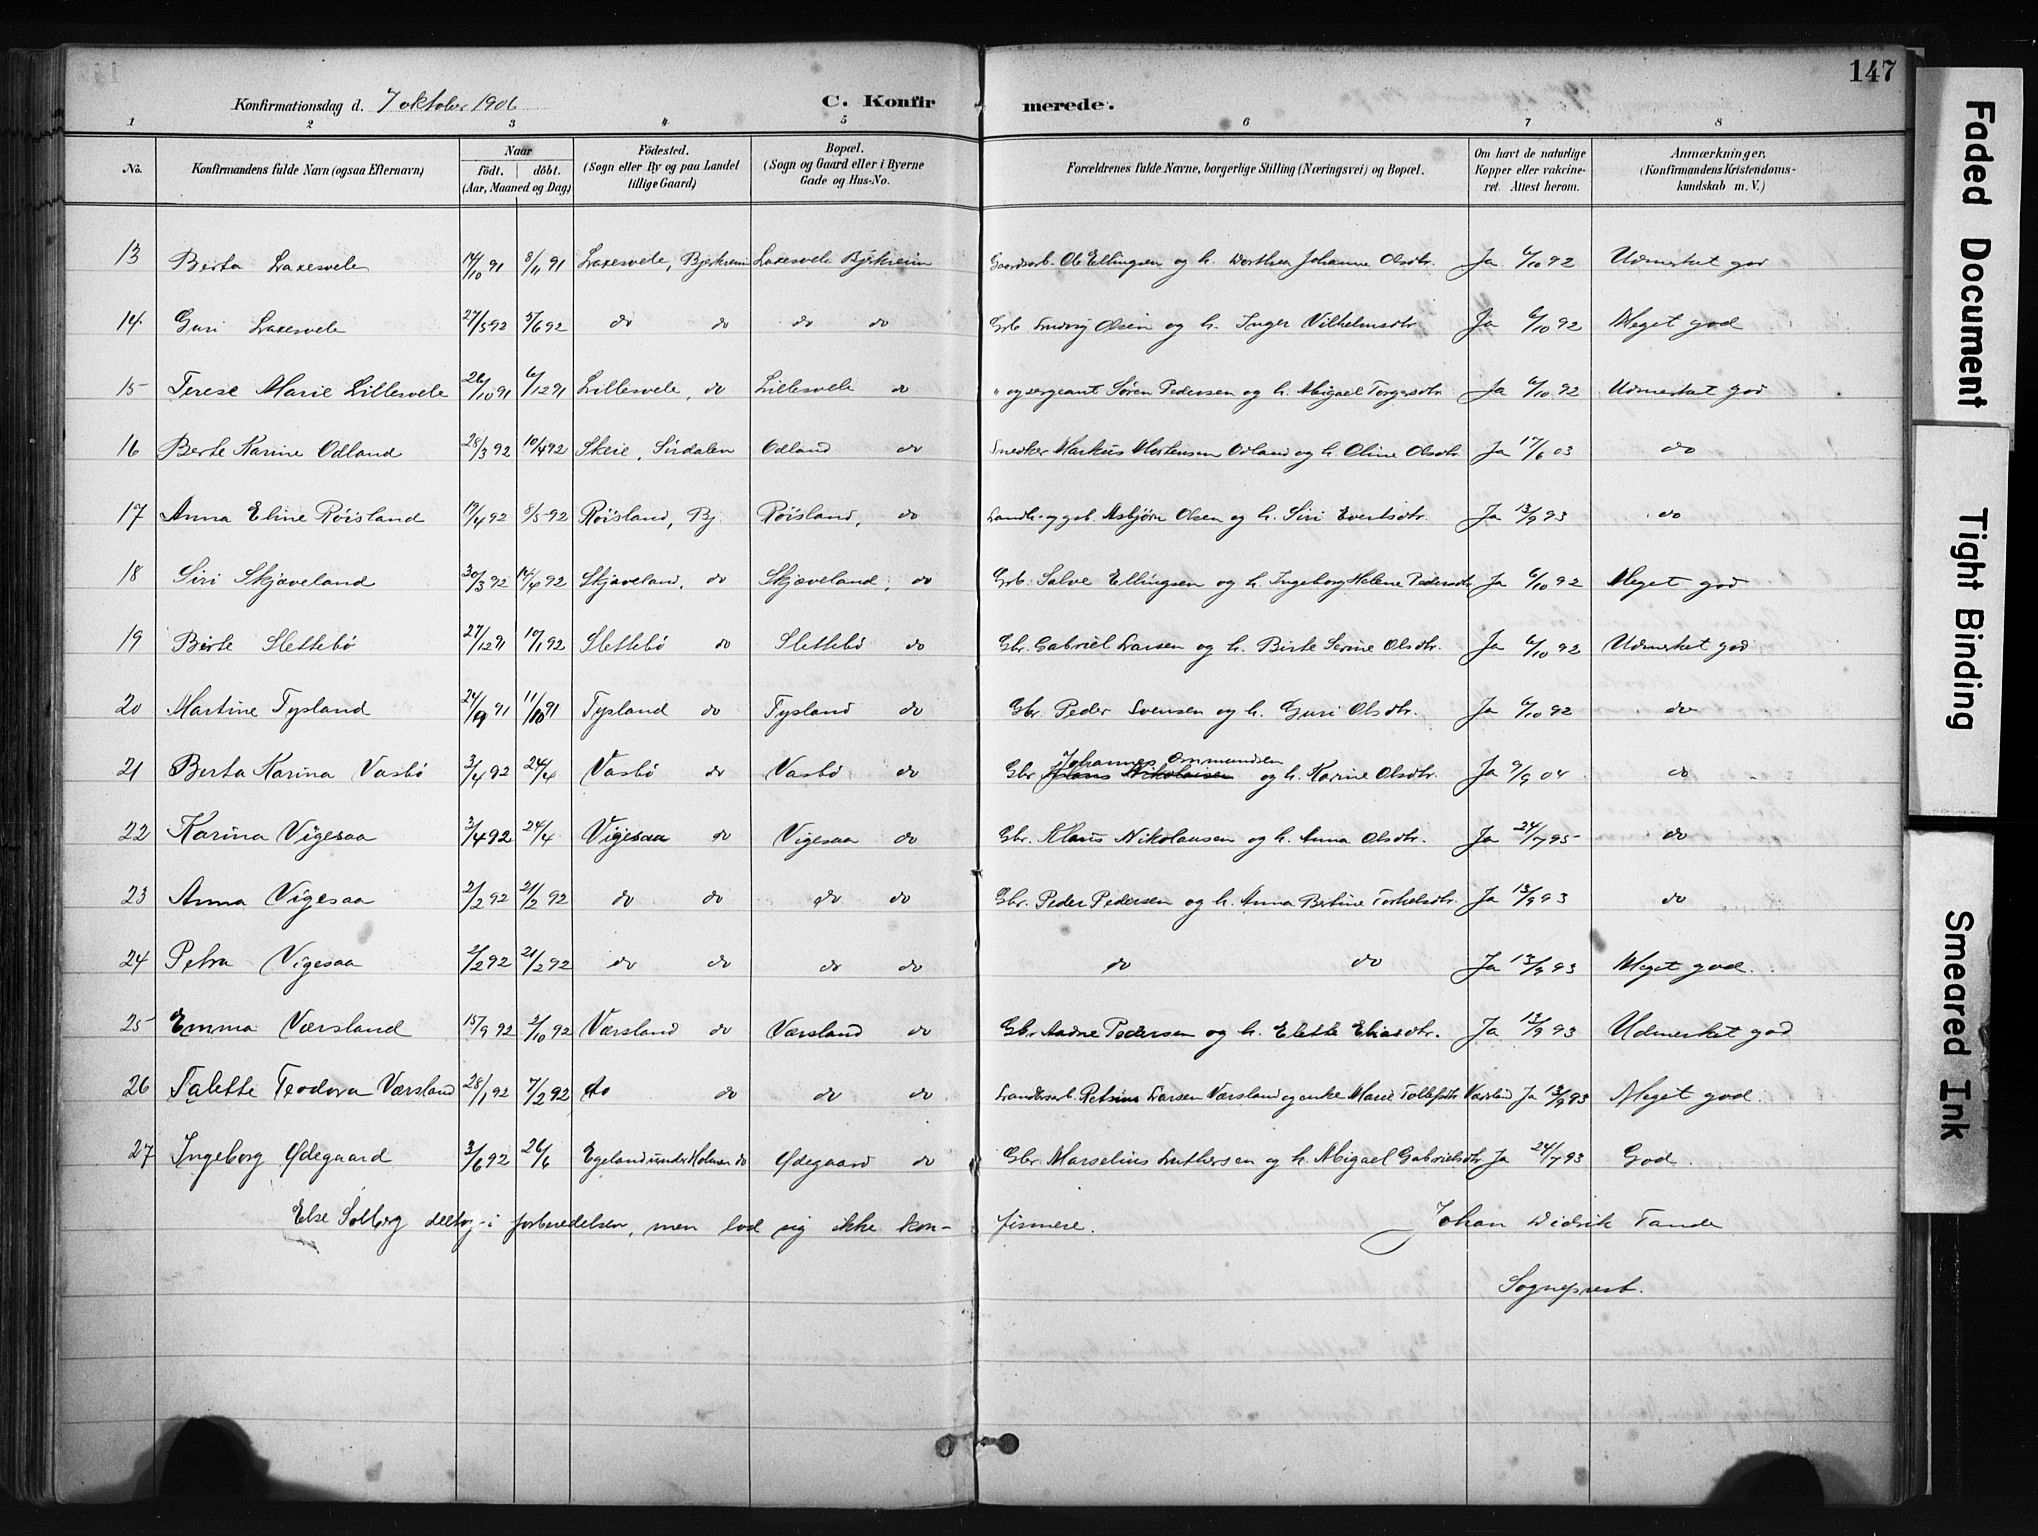 147
Konfirmationsdag d. 7 oktober 1906 C. Konfirmerede.
1 2 3 4 5 6 7 8
No. Konfirmandens fulde Navn (ogsaa Efternavn) Naar födt. döbt. (Aar, Maaned og Dag) Födested. (Sogn eller By og paa Landet tillige Gaard) Bopæl. (Sogn og Gaard eller i Byerne Gade og Hus-No. Forældrenes fulde Navne, borgerlige Stilling (Næringsvei) og Bopæl. Om havt de naturlige Kopper eller vakcineret. Attest herom. Anmærkninger. (Konfirmandens Kristendomskundskab m. V.)
13 Berta Laxesvele 14/10 91 8/11 91 Laxesvele, Bjerkreim Laxesvele Bjerkreim Gaardsarb. Ole Ellingsen og h. Dorthea Johanne Olsdtr. Ja 6/10 92 Udmerket god
14 Guri Laxesvele 27/5 92 5/6 92 do do do do Grb Ludvig Olsen og h. Inger Vilhelmsdtr Ja 6/10 92 Meget god
15 Terese Marie Lillesvele 26/10 91 6/12 91 Lillesvele, do Lillesvele do " og sergeant Søren Pedersen og h. Abigael Torgersdtr. Ja 6/10 92 Udmerket god
16 Berte Karine Odland 28/3 92 10/4 92 Skeie, Sirdalen Odland do Snedker Markus Mortensen Odland og h. Oline Olsdtr. Ja 17/6 03 do
17 Anna Eline Röisland 19/4 92 8/5 92 Röisland, Bj. Röisland, do Landh. og gb. Asbjörn Olsen og h. Siri Evertsdtr. Ja 13/9 93 do
18 Siri Skjæveland 30/3 92 14/4 92 Skjæveland, do Skjæveland, do Grb. Salve Ellingsen og h. Ingeborg Helene Pedersdtr Ja 6/10 92 Meget god
19 Berte Slettebö 27/12 91 10/1 92 Slettebö do Slettebö do Gbr. Gabriel Larsen og h. Berte Serine Olsdtr. Ja 6/10 92 Udmerket god
20 Martine Tysland 24/9 91 11/10 91 Tysland do Tysland do Gbr. Peder Svensen og h. Guri Olsdtr. Ja 6/10 92 do
21 Berta Karina Vasbö 3/4 92 24/4 Vasbö do Vasbö do Gbr Johannes Ommundsen og h. Karine Olsdtr. Ja 9/9 04 do
22 Karina Vigesaa 3/4 92 24/4 Vigesaa do Vigesaa do Gbr. Klaus Nikolausen og h. Anna Olsdtr. Ja 24/7 95 do
23 Anna Vigesaa 2/2 92 21/2 92 do do do do Gbr. Peder Pedersen og h. Anna Bertine Torkelsdtr. Ja 13/9 93 do
24 Petra Vigesaa 2/2 92 21/2 92 do do do do do do Ja 13/9 93 Meget god.
25 Emma Værsland 15/9 92 2/10 92 Værsland do Værsland do Gbr Aadne Pedersen og h. Elette Eliasdtr. Ja 13/9 93 Udmerket god
26 Talette Teodora Værsland 28/1 92 7/2 92 do do do do Retsius Larsen Værsland og enke Marie Tollefsdtr Værsland Ja 13/9 93 Meget god.
27 Ingeborg Ødegaard 3/6 92 26/6 Egeland under Holmen do Ødegaard do Gbr Marselius Luthersen og h. Abigael Gabrielsdtr Ja 24/7 93 God.
Else Solberg deltog i forberedelsen, men lod sig ikke konfirmere. Johan Didrik Tande
Sogneprest.
Faded Document
Tight Binding
Smeared Ink